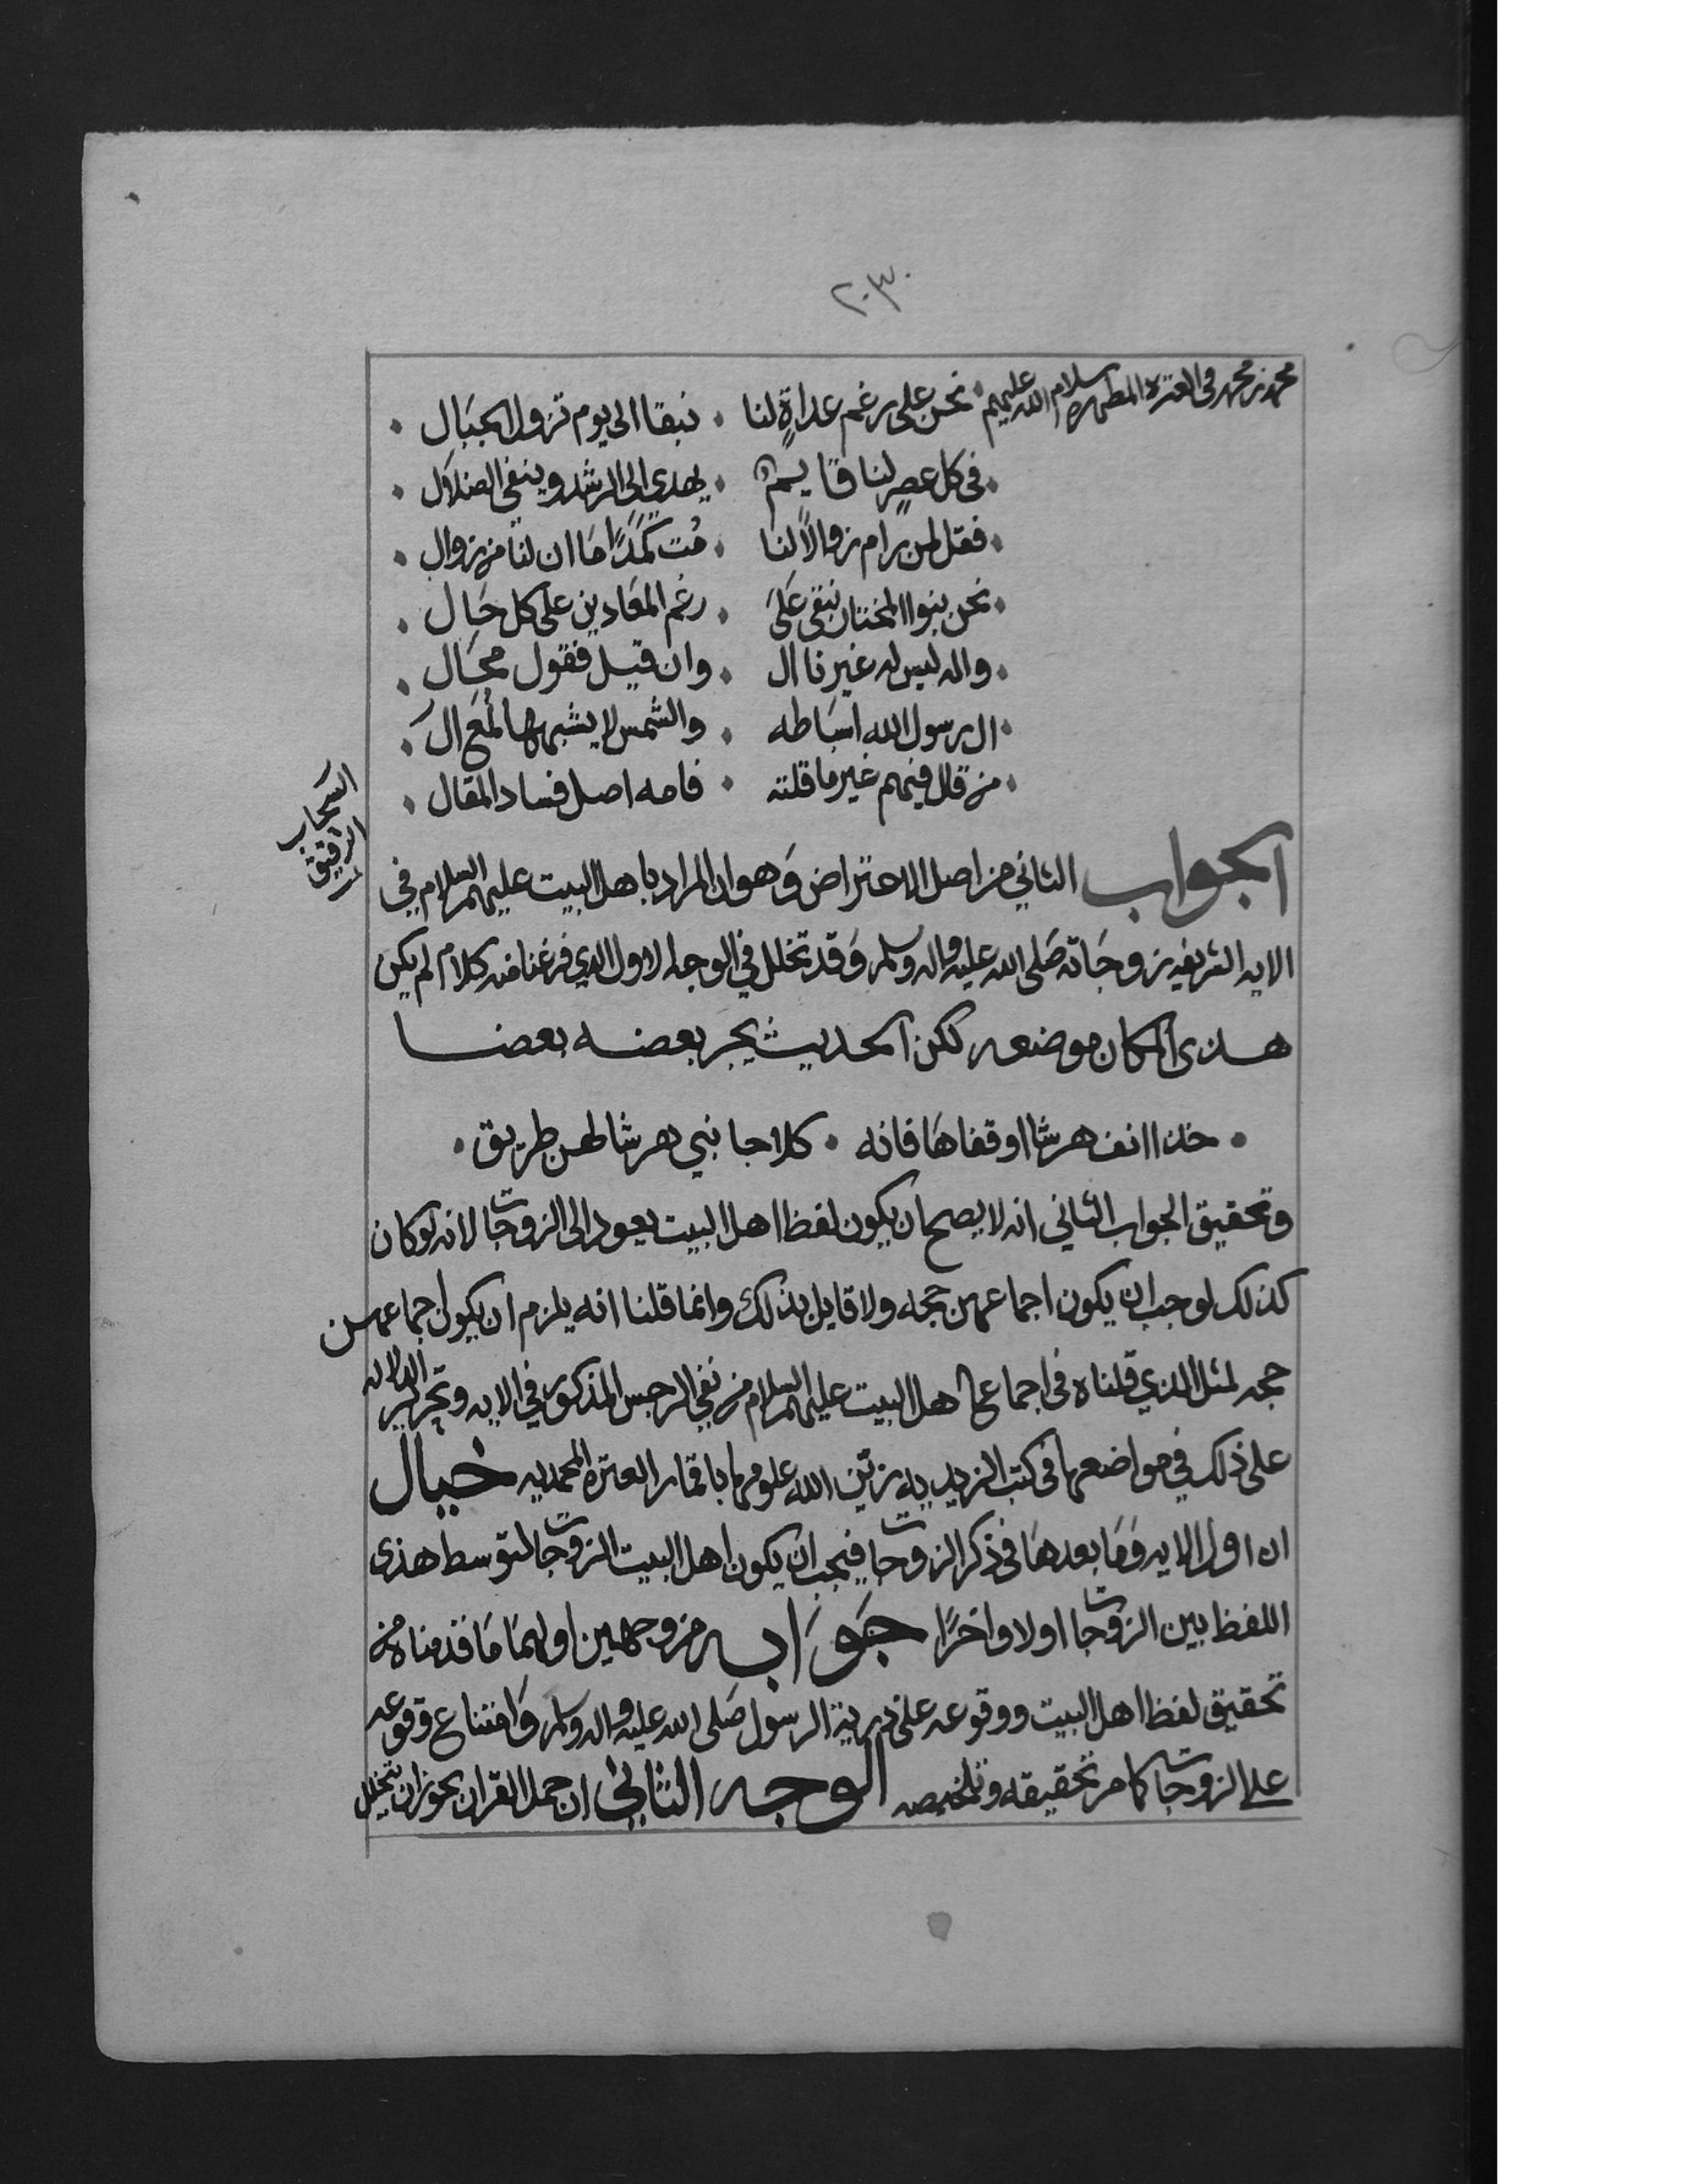 ٢٠٣
محمد بن محمد في العترة المطهره سلام الله عليهم · نحن على رغم عداةٍ لنا · نبقا الى يوم تزول الجبال ·
· في كل عصرٍ لنا قايم · يهدي الى الرشد وينفي الضلال ·
· فقل لمن رام زوالًا لنا · مُت كمَدًا ما ان لنا من زوال ·
· نحن بنوا المختار نبقى على · رغم المعادين على كل حال ·
· واله ليس له غيرنا ال · وان قيل فقول محال ·
· ال رسول الله اسباطه · والشمس لا يشبهها لمع ال ·
· من قال فيهم غير ما قلته · فامه اصل فساد المقال ·
السحاب
الرقيق
الجواب الثاني من اصل الاعتراض وهو ان المراد باهل البيت عليهم السلام في
الايه الشريفه زوجاته صلى الله عليه واله وسلم وقد تخلل في الوجه الاول الذي فرغنا منه كلام لم يكن
هذى المكان موضعه لكن الحديث يجر بعضه بعضا
· خذا انف هرشا او قفاها فانه · كلا جانبي هرشا لهن طريق ·
وتحقيق الجواب الثاني انه لا يصح ان يكون لفظ اهل البيت يعود الى الزوجات لانه لو كان
كذلك لوجب ان يكون اجماعهن حجه ولا قايل بذلك وانما قلنا انه يلزم ان يكون اجماعهن
حجه لمثل الذي قلناه في اجماع اهل البيت عليهم السلام من نفي الرجس المذكور في الايه وتحرير الدلاله
على ذلك في مواضعها في كتب الزيديه زين الله علومها باقمار العتره المحمديه خيال
ان اول الايه وما بعدها في ذكر الزوجات فيجب ان يكون اهل البيت الزوجات لتوسط هذى
اللفظ بين الزوجات اولا واخرًا جواب من وجهين اولهما ما قدمناه من
تحقيق لفظ اهل البيت ووقوعه على ذرية الرسول صلى الله عليه واله وسلم وامتناع وقوعه
على الزوجات كما مر تحقيقه وتلخيصه الوجه الثاني ان جمل القران يجوز ان يتخلل